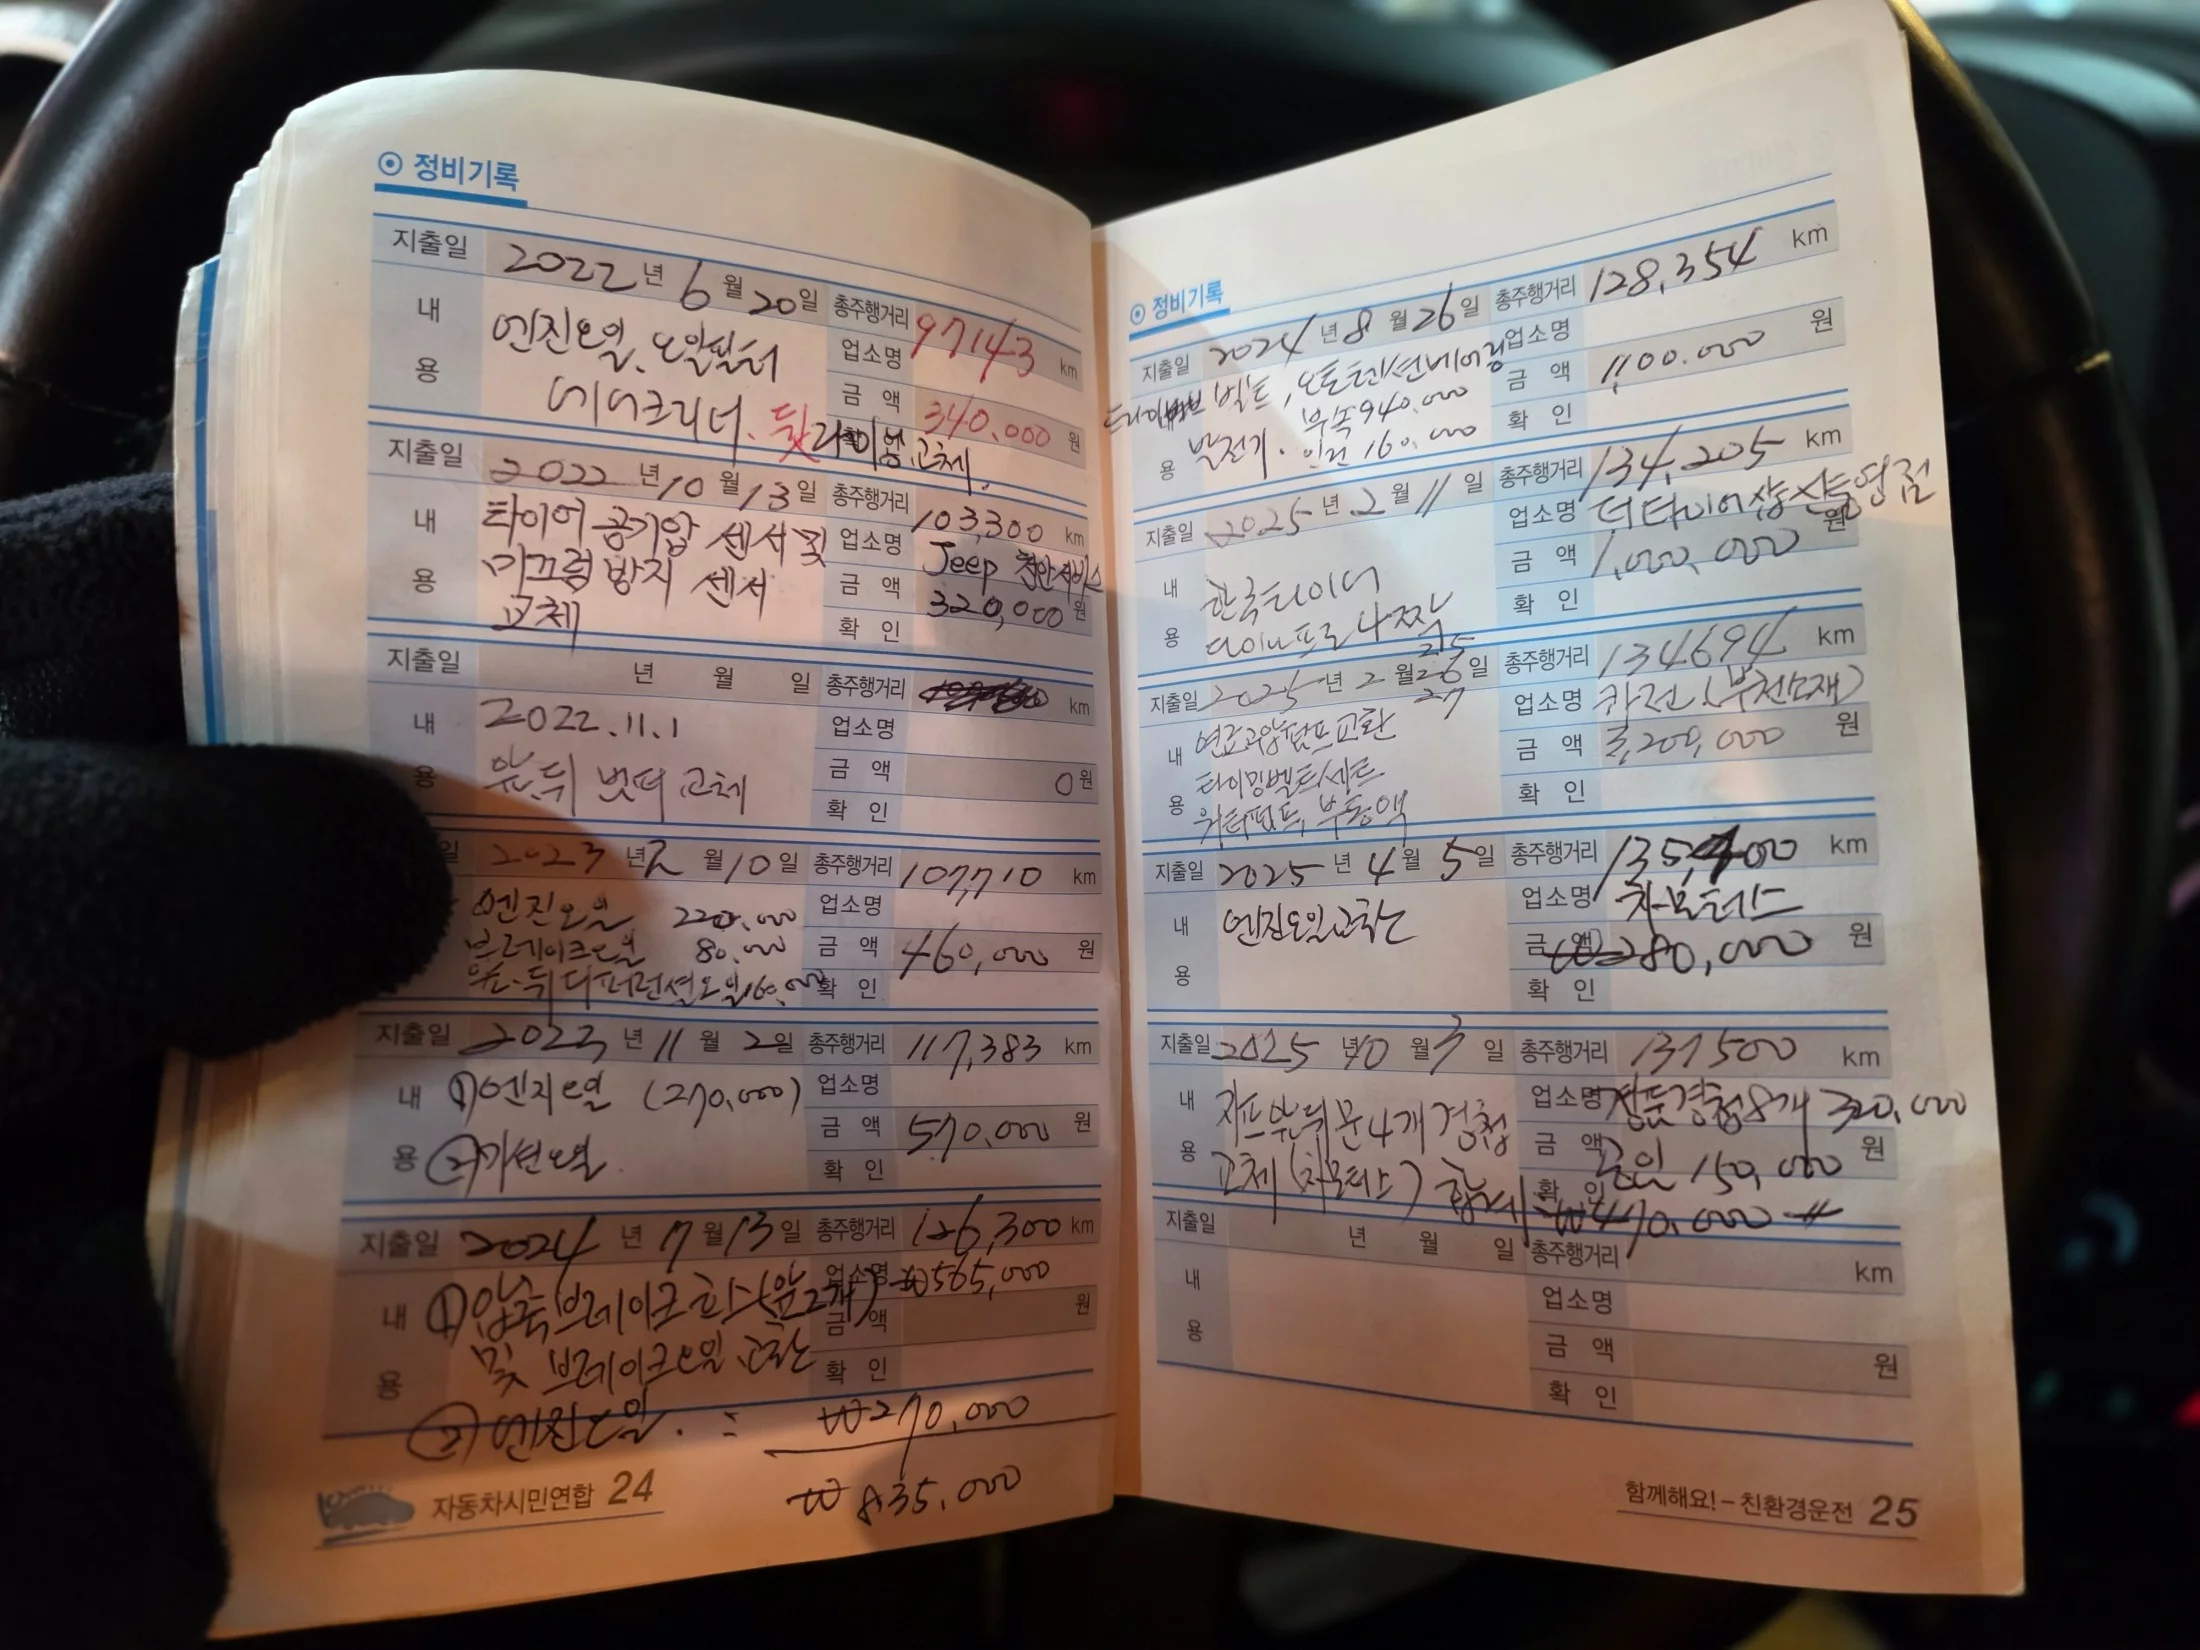 정비기록
지출일 2022 년 6 월 20 일 총주행거리 97143 km
내 용 엔진오일, 오일필터
에어크리너. 뒷라이닝 교체.
업소명
금 액 340,000 원
확 인
지출일 2022 년 10 월 13 일 총주행거리 103,300 km
내 용 타이어 공기압 센서 및
미끄럼 방지 센서
교체
업소명 Jeep 천안서비스
금 액 320,000 원
확 인
지출일 년 월 일 총주행거리 km
내 용 2022.11.1
앞.뒤 범퍼 교체
업소명
금 액 0 원
확 인
일 2023 년 2 월 10 일 총주행거리 107,710 km
엔진오일 220,000
브레이크오일 80,000
앞.뒤 디퍼런션오일 160,000
업소명
금 액 460,000 원
확 인
지출일 2023 년 11 월 2 일 총주행거리 117,383 km
내 용 ① 엔진오일 (270,000)
② 미션오일.
업소명
금 액 570,000 원
확 인
지출일 2024 년 7 월 13 일 총주행거리 126,300 km
내 용 ① 압축 브레이크 호스 (앞 2개) ₩565,000
및 브레이크오일 교환
업소명
금 액 원
확 인
② 엔진오일. = ₩270,000
₩835,000
자동차시민연합 24
정비기록
지출일 2024 년 8 월 26 일 총주행거리 128,354 km
내 용 드라이브 벨트, 오토텐션베어링
부속 940,000
발전기. 인건 160,000
업소명
금 액 1,100,000 원
확 인
지출일 2025 년 2 월 11 일 총주행거리 134,205 km
내 용 한국타이어
다이나프로 4짝
업소명 더타이어샵 신월점
금 액 1,000,000 원
확 인
25
지출일 2025 년 2 월 26 일 총주행거리 134694 km
27
내 용 연료고압펌프교환
타이밍벨트세트
워터펌프, 부동액
업소명 (부천소재)
금 액 2,200,000 원
확 인
지출일 2025 년 4 월 5 일 총주행거리 135,400 km
내 용 엔진오일교환
업소명 차모터스
금 액 ₩280,000 원
확 인
지출일 2025 년 10 월 3 일 총주행거리 137500 km
내 용 지프 앞뒤 문 4개 경첩
교체 (차모터스) 합계 ₩470,000
업소명 정품경첩 8개 320,000
금 액 공임 150,000 원
확 인
지출일 년 월 일 총주행거리 km
내 용
업소명
금 액 원
확 인
함께해요! - 친환경운전 25